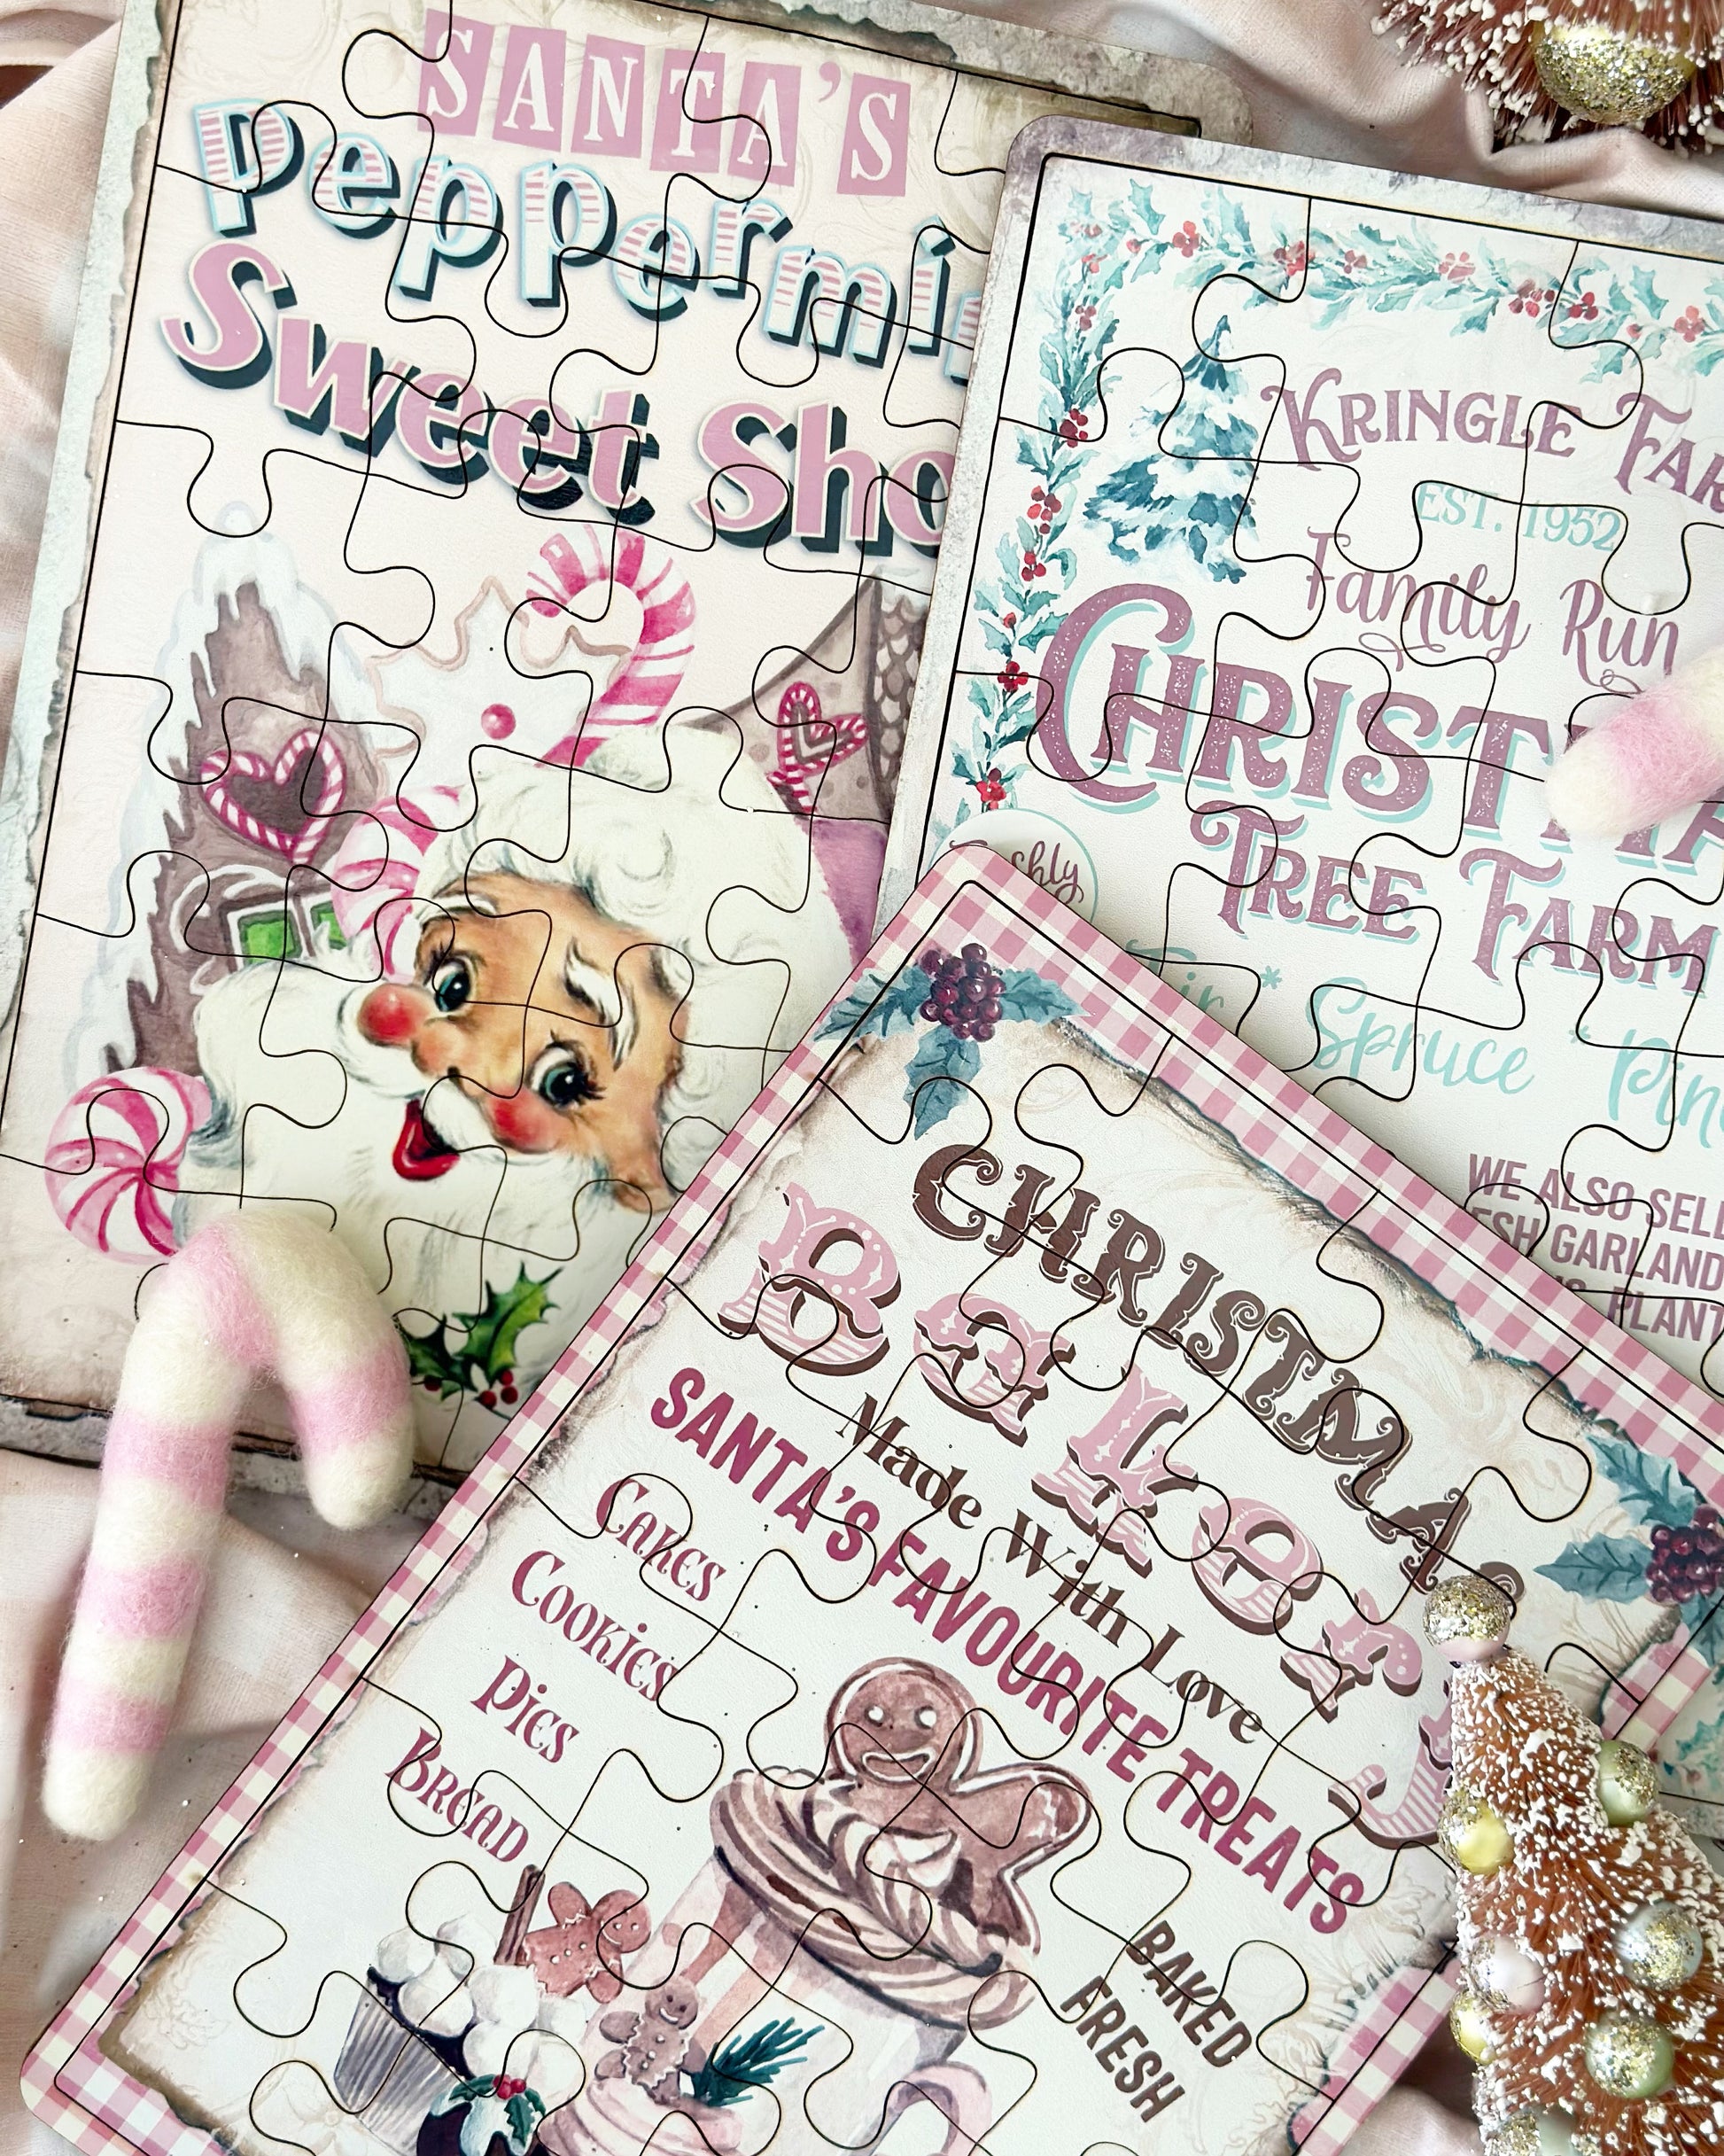 SANTA'S
Peppermi
Sweet Sho
KRINGLE FAR
EST. 1952
Family Run
CHRISTMA
TREE FARM
Fir * Spruce * Pin
WE ALSO SELL
ESH GARLAND
PLANT
CHRISTMAS
BAKERY
Made With Love
SANTA'S FAVOURITE TREATS
CAKES
COOKIES
PIES
BREAD
BAKED
FRESH